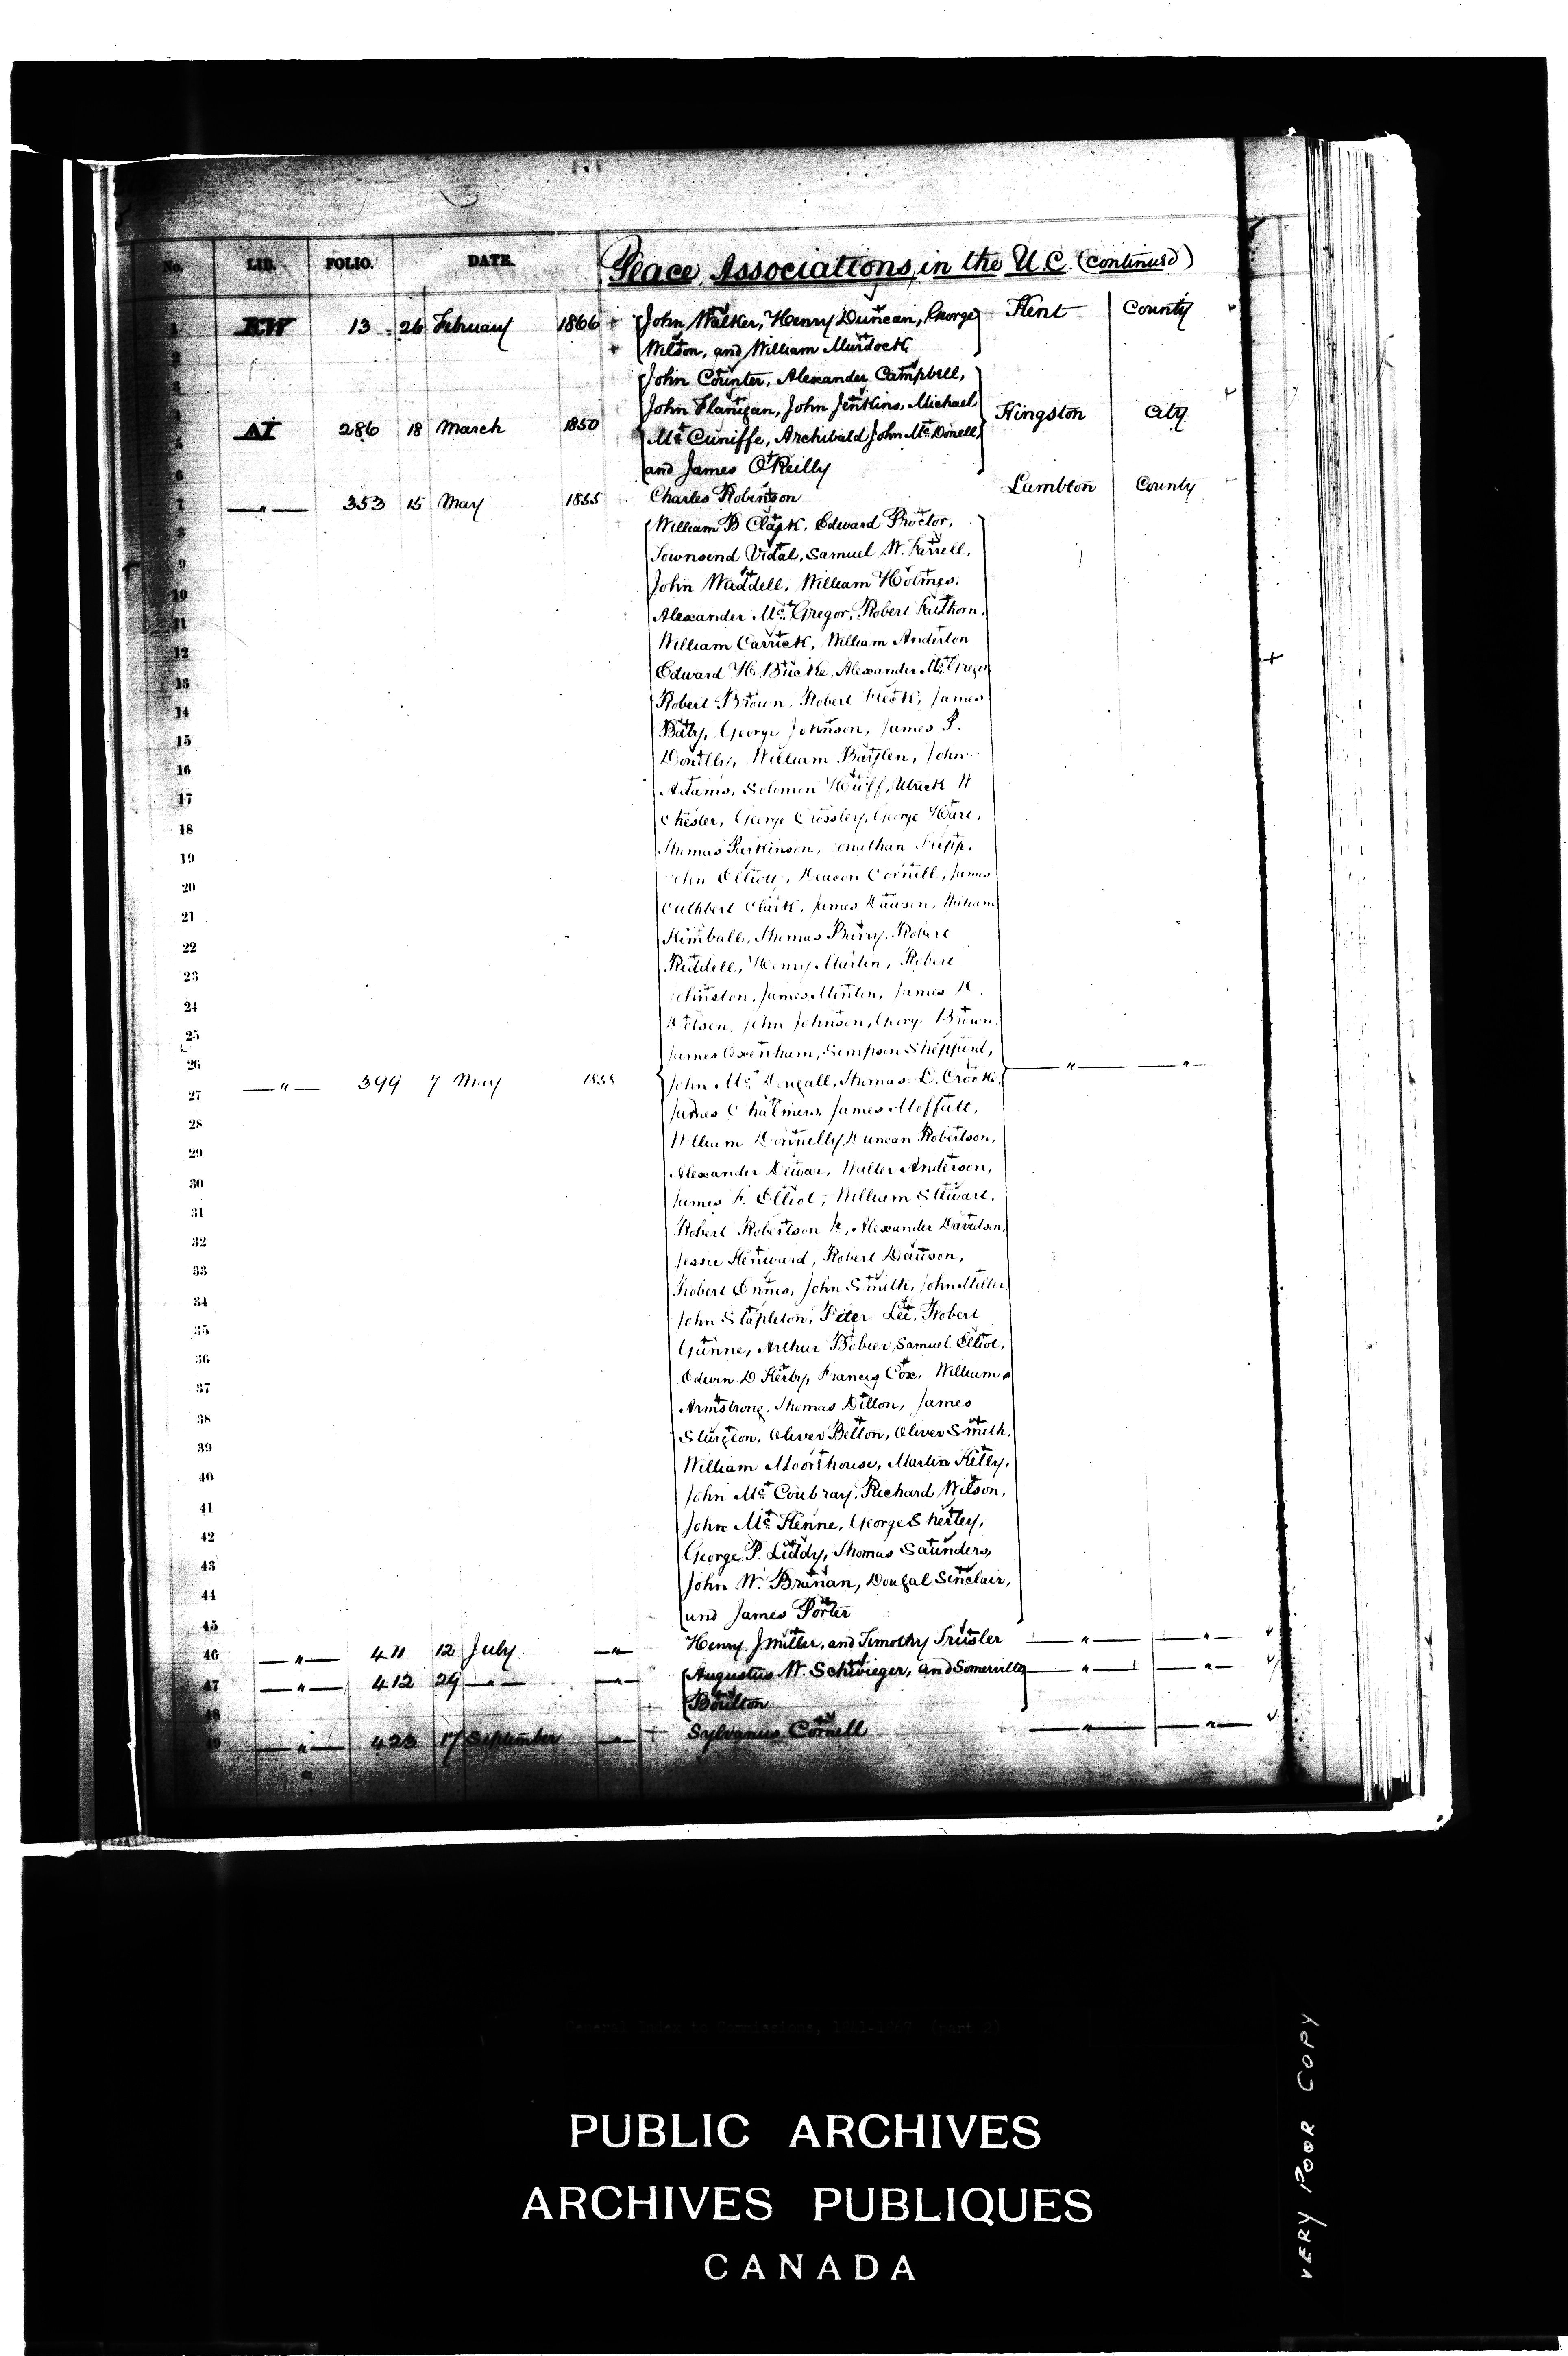 No. LIB. FOLIO. DATE. Peace Associations, in the U.C. (continued)
1 EW 13 26 February 1866 John Walker, Henry Duncan, George Kent County
2 Wilson, and William Murdock
3 John Counter, Alexander Campbell,
4 John Flanigan, John Jenkins, Michael
5 AI 286 18 March 1850 Mc Cuniffe, Archibald John Mc Donell, Kingston City
6 and James O'Reilly
7 —"— 353 15 May 1855 Charles Robinson Lambton County
8 William B Clark, Edward Proctor,
9 Townsend Vidal, Samuel W. Farrell,
10 John Waddell, William Holmes,
11 Alexander Mc Gregor, Robert Faethorn,
12 William Carrick, William Anderton
13 Edward H. Bucke, Alexander Mc Gregor
14 Robert Brown, Robert Fleck, James
15 Baby, George Johnson, James P.
16 William Bartlen, John
17 Adams, Solomon Huff, Ulrick H
18 Chester, George Crossley, George Hart,
19 Thomas Parkinson, Jonathan Tripp,
20 John Elliott, Deacon Cornell, James
21 Cuthbert Clark, James Dawson, William
22 Kimball, Thomas Barry, Robert
23 Riddell, Henry Martin, Robert
24 Johnston, James Minton, James
25 John Johnson, George Brown,
26 James Oxenham, Simpson Sheppard,
27 —"— 399 7 May John Mc Dougall, Thomas L. Crooks, —"— —"—
28 James Chalmers, James Moffatt,
29 William Donnelly, Duncan Robertson,
30 Alexander Dewar, Walter Anderson,
31 James F. Elliot, William Stewart,
32 Robert Robertson Jr, Alexander Davidson,
33 Jesse Kenward, Robert Dawson,
34 Robert Ennis, John Smith, John Miller,
35 John Stapleton, Peter Lee, Robert
36 Gunne, Arthur Bobier, Samuel Elliot,
37 Edwin D Kerby, Francis Cox, William
38 Armstrong, Thomas Dillon, James
39 Sturgeon, Oliver Belton, Oliver Smith,
40 William Moorehouse, Martin Kelly,
41 John Mc Coubray, Richard Wilson,
42 John Mc Kenne, George Sherley,
43 George P. Liddy, Thomas Saunders,
44 John W. Branan, Dougal Sinclair,
45 and James Porter
46 —"— 411 12 July —"— Henry J Miller, and Timothy Trusler —"— —"—
47 —"— 412 29 —"— —"— Augustus W. Schwieger, and Somerville —"— —"—
48 Boulton
49 —"— 423 17 September —"— Sylvanus Cornell —"— —"—
General Index to Commissions, 1841-1867 (part 2)
PUBLIC ARCHIVES
ARCHIVES PUBLIQUES
CANADA
VERY POOR COPY